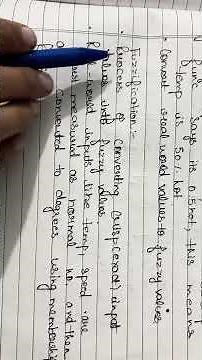 func says its 0.5 hot, this means
temp is 50% hot
• Convert real world values to fuzzy values
Fuzzification :-
• Process of Converting Crisp (exact) input
values into fuzzy values
• Real-world inputs like temp, speed are
measured as normal no. and then
Converted to degrees using membership